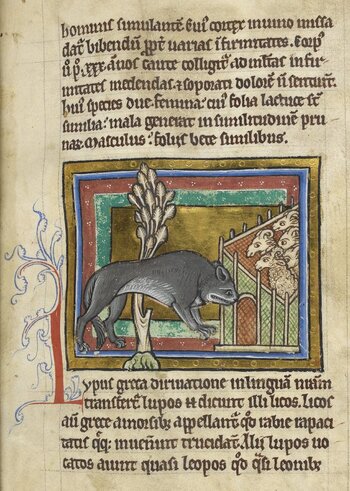 hominis simulante. Eius cortex in uino missa
dat̄ bibendū ꝓpt̄ uarias ifirmitates.
.xxx. caute colligit̄ infir
mitates medendas ⁊ soporati dolorē n̄ sentiūt.
huiꝰ species due. femina: cuiꝰ folia lactuce st̄
similia: mala generat in similitudinē pru
nar̄. Masculus: foliis bete similibus.
Lypus greca diriuatione in linguā nr̄am
transfert̄. lupos dicunt illi licos. Licos
aut̄ grece a morsibꝰ appellant̄ qd̄ rabie rapaci
tatis q̄q; inuenerīt trucidant. Alii lupos uo
catos aiunt quasi leopos qd̄ q̄si leonibꝫ